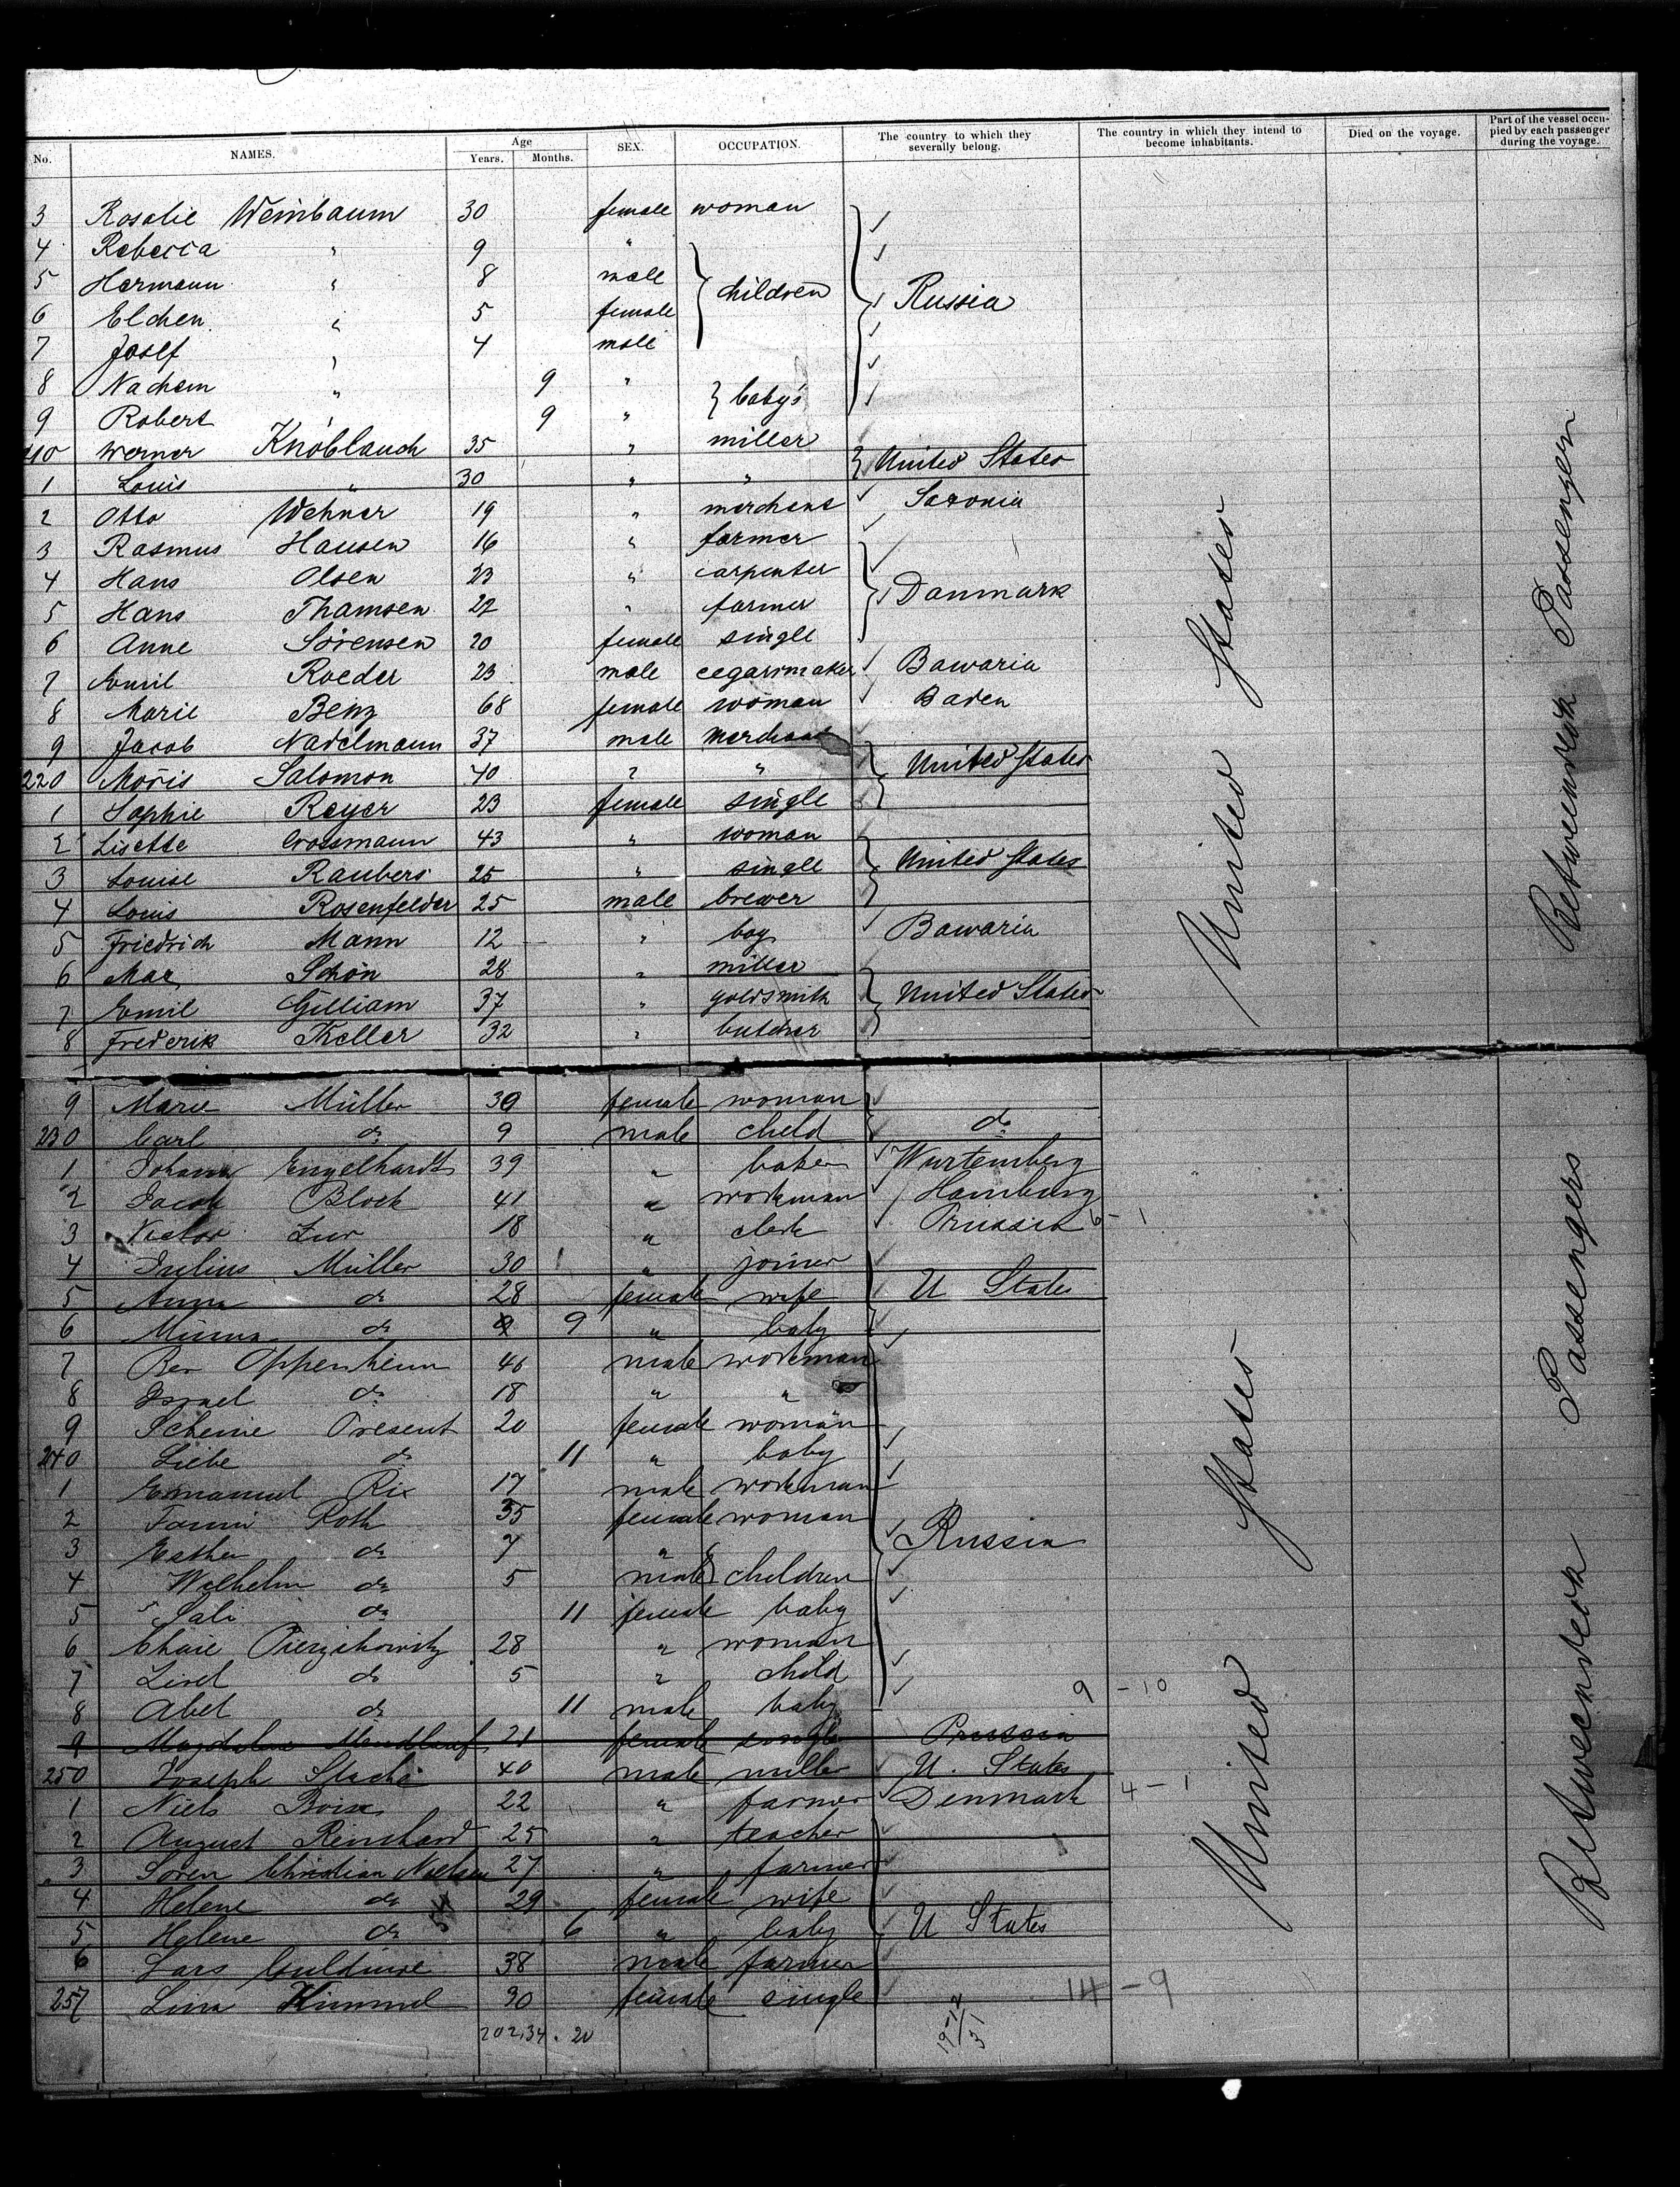 No. NAMES. Age Years. Months. SEX. OCCUPATION. The country to which they severally belong. The country in which they intend to become inhabitants. Died on the voyage. Part of the vessel occupied by each passenger during the voyage.
3 Rosalie Weinbaum 30 female woman
4 Rebecca " 9 "
5 Hermann " 8 male children Russia
6 Elchen " 5 female
7 Josef " 4 male
8 Nachem " 9 "
9 Robert " 9 " baby's
210 Werner Knoblauch 35 " miller United States
1 Louis " 30 " "
2 Otto Wehner 19 " merchant Saxonia
3 Rasmus Hansen 16 " farmer
4 Hans Olsen 23 " carpenter Danmark
5 Hans Thamsen 22 " farmer
6 Anne Sørensen 20 female single
7 Emil Roeder 23 male cegarrmaker Bawaria
8 Marie Benz 68 female woman Baden
9 Jacob Nadelmann 37 male merchant United States
220 Moris Salomon 40 " "
1 Sophie Reyer 23 female single
2 Lisette Crossmann 43 " woman United States
3 Louise Raubers 25 " single
4 Louis Rosenfelder 25 male brewer
5 Friedrich Mann 12 " boy Bawaria
6 Max Schön 28 " miller
7 Emil Gilliam 37 " goldsmith United States
8 Frederik Keller 32 " butcher
United States
Betweendeck Passengers
9 Marie Müller 39 female woman
230 Carl do 9 male child do
1 Johann Engelhardt 39 " baker Wurtemberg
2 Jacob Block 41 " workman Hamburg
3 Victor Lur 18 " clerk Prussia 6 - 1
4 Julius Müller 30 " joiner
5 Anna do 28 female wife U States
6 Minna do 9 " baby
7 Ber Oppenheim 46 male workman
8 Israel do 18 " "
9 Scheine Present 20 female woman
240 Liebe do 11 " baby
1 Emanuel Rix 17 male workman
2 Fanni Roth 35 female woman
3 Esther do 7 " Russia
4 Wilhelm do 5 male children
5 Sali do 11 female baby
6 Chaie Pierzchowitz 28 " woman
7 Lisel do 5 " child
8 Abel do 11 male baby 9 - 10
9 Magdalene Mendlauf 21 female single Prussia
250 Joseph Stache 40 male miller U. States
1 Niels Boise 22 " farmer Denmark 4 - 1
2 August Reinhard 25 " teacher
3 Soren Christian Nielsen 27 " farmer
4 Helene do 29 female wife
5 Helene do 6 " baby U States
6 Lars Guldmoe 38 male farmer
257 Lina Kimmel 30 female single 14 - 9
202.34. 20
United States
Betweendeck Passengers